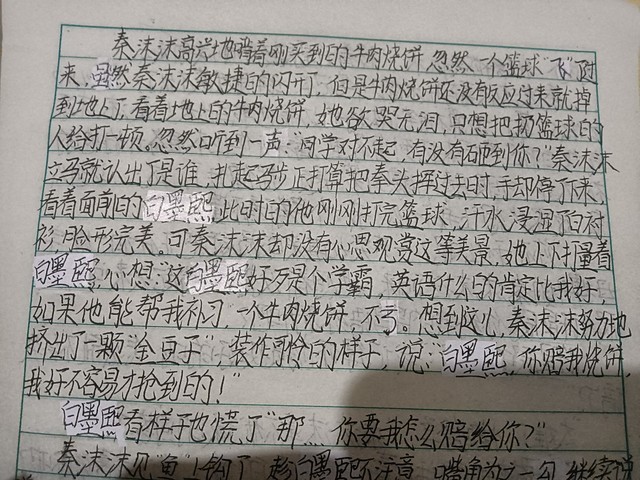 秦沫沫高兴地啃着刚买到的牛肉烧饼 忽然一个篮球"飞"过
来，虽然秦沫沫敏捷的闪开了，但是牛肉烧饼还没有反应过来就掉
到地上了，看着地上的牛肉烧饼，她欲哭无泪，只想把扔篮球的
人给打一顿。忽然听到一声："同学对不起，有没有砸到你？"秦沫沫
立马就认出了是谁，扎起马步正打算把拳头挥过去时，手却停了下来，
看着面前的白墨熙，此时的他刚刚打完篮球，汗水浸湿了白衬
衫，脸形完美。可秦沫沫却没有心思观赏这等美景，她上下打量着
白墨熙，心想：这白墨熙好歹是个学霸，英语什么的肯定比我好，
如果他能帮我补习，一个牛肉烧饼，不亏。想到这儿，秦沫沫努力地
挤出了一颗"金豆子"，装作可怜的样子，说："白墨熙，你赔我烧饼，
我好不容易才抢到的！
白墨熙看样子也慌了"那…你要我怎么赔给你？"
秦沫沫见"鱼"上钩了，趁白墨熙不注意，嘴角为之一勾，继续说